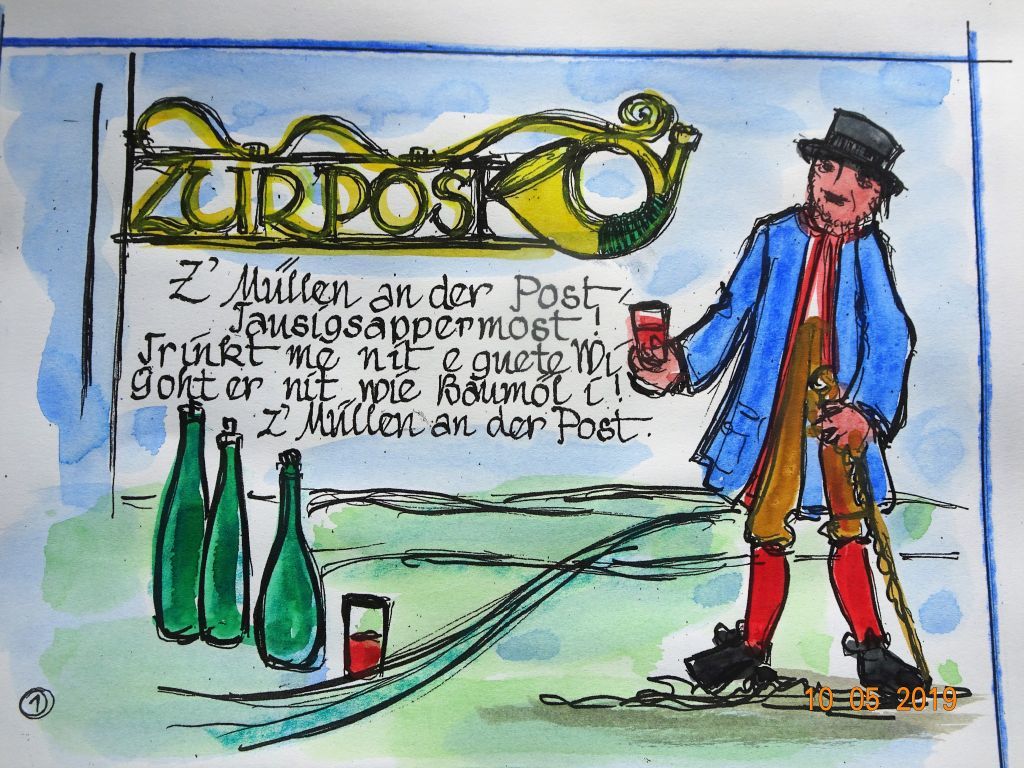 ZUR POST
Z' Müllen an der Post,
Tausigsappermost!
Trinkt me nit e guete Wi
Goht er nit wie Baumöl i!
Z' Müllen an der Post.
1
10 05 2019